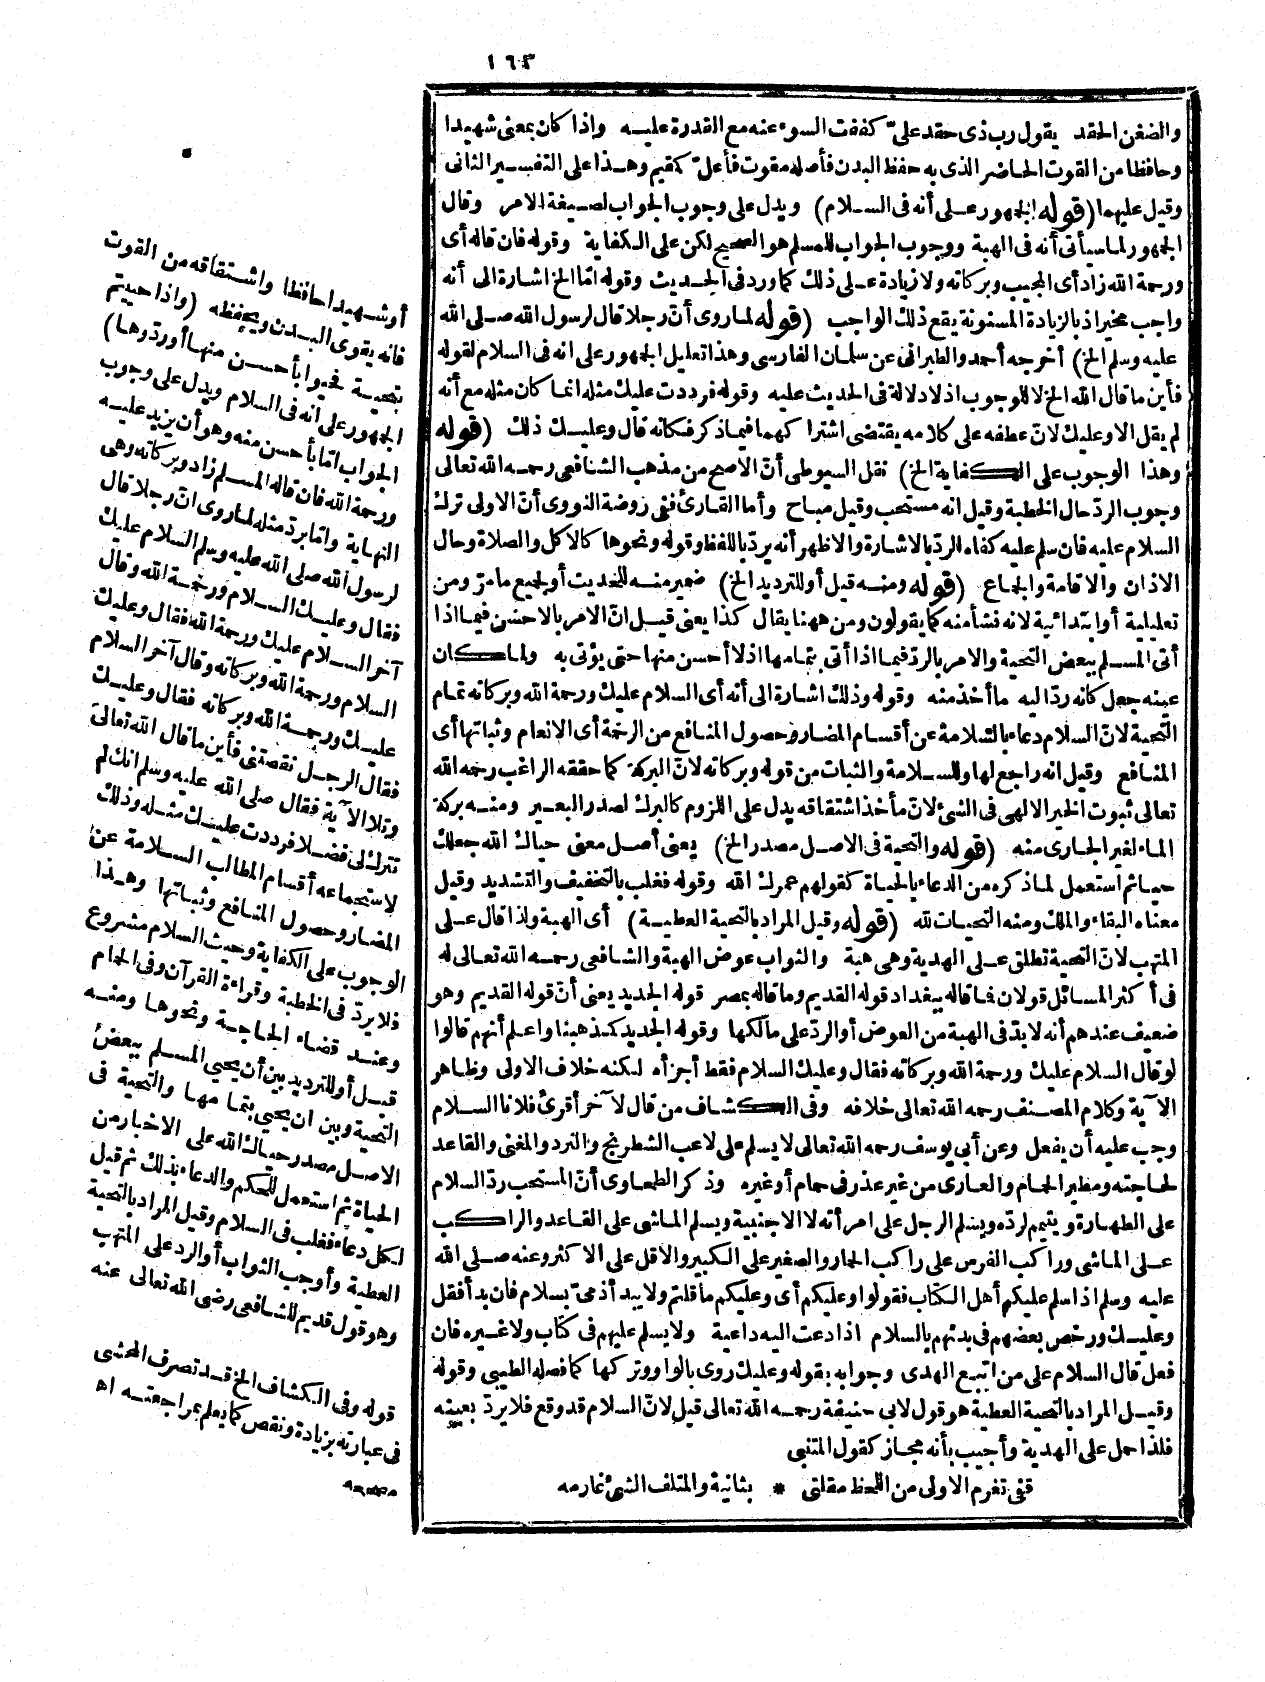 ١٦٣
والضغن الحقد يقول رب ذى حقد علىّ كففت السوء عنه مع القدرة عليه واذا كان بمعنى شهيدا
وحافظا من القوت الحاضر الذى به حفظ البدن فأصله مقوت فأعلّ كمقيم وهذا على التفسير الثانى
وقيل عليهما (قوله الجمهور على أنه فى السلام) ويدل على وجوب الجواب لصيغة الامر وقال
الجمهور لما سيأتى أنه فى الهبة ووجوب الجواب للمسلم هو الصحيح لكن على الكفاية وقوله فان قاله أى
ورحمة الله زاد أى المجيب وبركاته ولا زيادة على ذلك كما ورد فى الحديث وقوله امّا الخ اشارة الى أنه
واجب مخير اذ بالزيادة المسنونة يقع ذلك الواجب (قوله لما روى أنّ رجلا قال لرسول الله صلى الله
عليه وسلم الخ) أخرجه أحمد والطبرانى عن سلمان الفارسى وهذا تعليل الجمهور على انه فى السلام لقوله
فأين ما قال الله الخ لا للوجوب اذ لا دلالة فى الحديث عليه وقوله فرددت عليك مثله انما كان مثله مع أنه
لم يقل الا وعليك لانّ عطفه على كلامه يقتضى اشتراكهما فيما ذكر فكانه قال وعليك ذلك (قوله
وهذا الوجوب على الكفاية الخ) نقل السيوطى أنّ الاصح من مذهب الشافعى رحمه الله تعالى
وجوب الردّ حال الخطبة وقيل انه مستحب وقيل مباح وأما القارئ ففى روضة النووى أنّ الاولى ترك
السلام عليه فان سلم عليه كفاه الردّ بالاشارة والاظهر أنه يردّ باللفظ وقوله ونحوها كالاكل والصلاة وحال
الاذان والاقامة والجماع (قوله ومنه قيل أو للترديد الخ) ضمير منه للحديث أو لجميع ما مرّ ومن
تعليلية أو ابتدائية لانه نشأ منه كما يقولون ومن ههنا يقال كذا يعنى قيل انّ الامر بالاحسن فيما اذا
أتى المسلم ببعض التحية والامر بالردّ فيما اذا أتى بتمامها اذ لا أحسن منها حتى يؤتى به ولما كان
عينه جعل كانه ردّ اليه ما أخذ منه وقوله وذلك اشارة الى أنه أى السلام عليك ورحمة الله وبركاته تمام
التحية لانّ السلام دعاء بالسلامة عن أقسام المضار وحصول المنافع من الرحمة أى الانعام وثباتها أى
المنافع وقيل انه راجع لها وللسلامة والثبات من قوله وبركاته لانّ البركة كما حققه الراغب رحمه الله
تعالى ثبوت الخير الالهى فى الشئ لانّ مأخذ اشتقاقه يدل على اللزوم كالبرك لصدر البعير ومنه بركة
الماء لغير الجارى منه (قوله والتحية فى الاصل مصدر الخ) يعنى أصل معنى حياك الله جعلك
حيا ثم استعمل لما ذكره من الدعاء بالحياة كقولهم عمرك الله وقوله فغلب بالتخفيف والتشديد وقيل
معناه البقاء والملك ومنه التحيات لله (قوله وقيل المراد بالتحية العطية) أى الهبة ولذا قال على
المتهب لانّ التحية تطلق على الهدية وهى هبة والثواب عوض الهبة والشافعى رحمه الله تعالى له
فى أكثر المسائل قولان فما قاله ببغداد قوله القديم وما قاله بمصر قوله الجديد يعنى أنّ قوله القديم وهو
ضعيف عندهم أنه لا بدّ فى الهبة من العوض أو الردّ على مالكها وقوله الجديد كمذهبنا واعلم أنهم قالوا
لو قال السلام عليك ورحمة الله وبركاته فقال وعليك السلام فقط أجزأه لكنه خلاف الاولى وظاهر
الآية وكلام المصنف رحمه الله تعالى خلافه وفى الكشاف من قال لآخر أقرئ فلانا السلام
وجب عليه أن يفعل وعن أبى يوسف رحمه الله تعالى لا يسلم على لاعب الشطرنج والنرد والمغنى والقاعد
لحاجته ومطير الحمام والعارى من غير عذر فى حمام أو غيره وذكر الطحاوى أنّ المستحب ردّ السلام
على الطهارة ويتيمم لردّه ويسلم الرجل على امرأته لا الاجنبية ويسلم الماشى على القاعد والراكب
على الماشى وراكب الفرس على راكب الحمار والصغير على الكبير والاقل على الاكثر وعنه صلى الله
عليه وسلم اذا سلم عليكم أهل الكتاب فقولوا وعليكم أى وعليكم ما قلتم ولا يبدأ ذمىّ بسلام فان بدأ فقل
وعليك ورخص بعضهم فى بدئهم بالسلام اذا دعت اليه داعية ولا يسلم عليهم فى كتاب ولا غيره فان
فعل قال السلام على من اتبع الهدى وجوابه بقوله وعليك روى بالواو وتركها كما فصله الطيبى وقوله
وقيل المراد بالتحية العطية هو قول لابى حنيفة رحمه الله تعالى قيل لانّ السلام قد وقع فلا يردّ بعينه
فلذا حمل على الهدية وأجيب بأنه مجاز كقول المتنبى
قفى تغرم الاولى من اللحظ مقلتى * بثانية والمتلف الشئ غارمه
أو شهيدا حافظا واشتقاقه من القوت
فانه يقوى البدن ويحفظه (واذا حييتم
بتحية فحيوا بأحسن منها أو ردّوها)
الجمهور على انه فى السلام ويدل على وجوب
الجواب امّا بأحسن منه وهو أن يزيد عليه
ورحمة الله فان قاله المسلم زاد وبركاته وهى
النهاية وامّا بردّ مثله لما روى انّ رجلا قال
لرسول الله صلى الله عليه وسلم السلام عليك
فقال وعليك السلام ورحمة الله وقال
آخر السلام عليك ورحمة الله فقال وعليك
السلام ورحمة الله وبركاته وقال آخر السلام
عليك ورحمة الله وبركاته فقال وعليك
فقال الرجل نقصتنى فأين ما قال الله تعالى
وتلا الآية فقال صلى الله عليه وسلم انك لم
تترك لى فضلا فرددت عليك مثله وذلك
لاستجماعه أقسام المطالب السلامة عن
المضار وحصول المنافع وثباتها وهذا
الوجوب على الكفاية وحيث السلام مشروع
فلا يردّ فى الخطبة وقراءة القرآن وفى الحمام
وعند قضاء الحاجة ونحوها ومنه
قيل أو للترديد بين أن يحيى المسلم ببعض
التحية وبين ان يحيى بتمامها والتحية فى
الاصل مصدر حياك الله على الاخبار من
الحياة ثم استعمل للحكم والدعاء بذلك ثم قيل
لكل دعاء فغلب فى السلام وقيل المراد بالتحية
العطية وأوجب الثواب أو الرد على المتهب
وهو قول قديم للشافعى رضى الله تعالى عنه
قوله وفى الكشاف الخ قد تصرف المحشى
فى عبارته بزيادة ونقص كما يعلم بمراجعته اه
مصححه